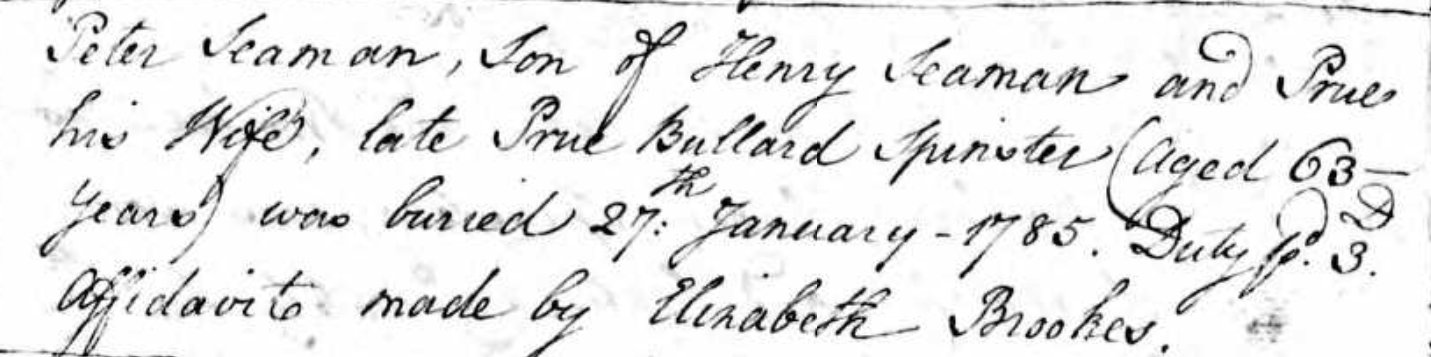 Peter Seaman, Son of Henry Seaman and Prue
his Wife, late Prue Bullard Spinster (Aged 63-
Years) was buried 27:th January - 1785. Duty pd. 3.D
Affidavit made by Elizabeth Brookes.